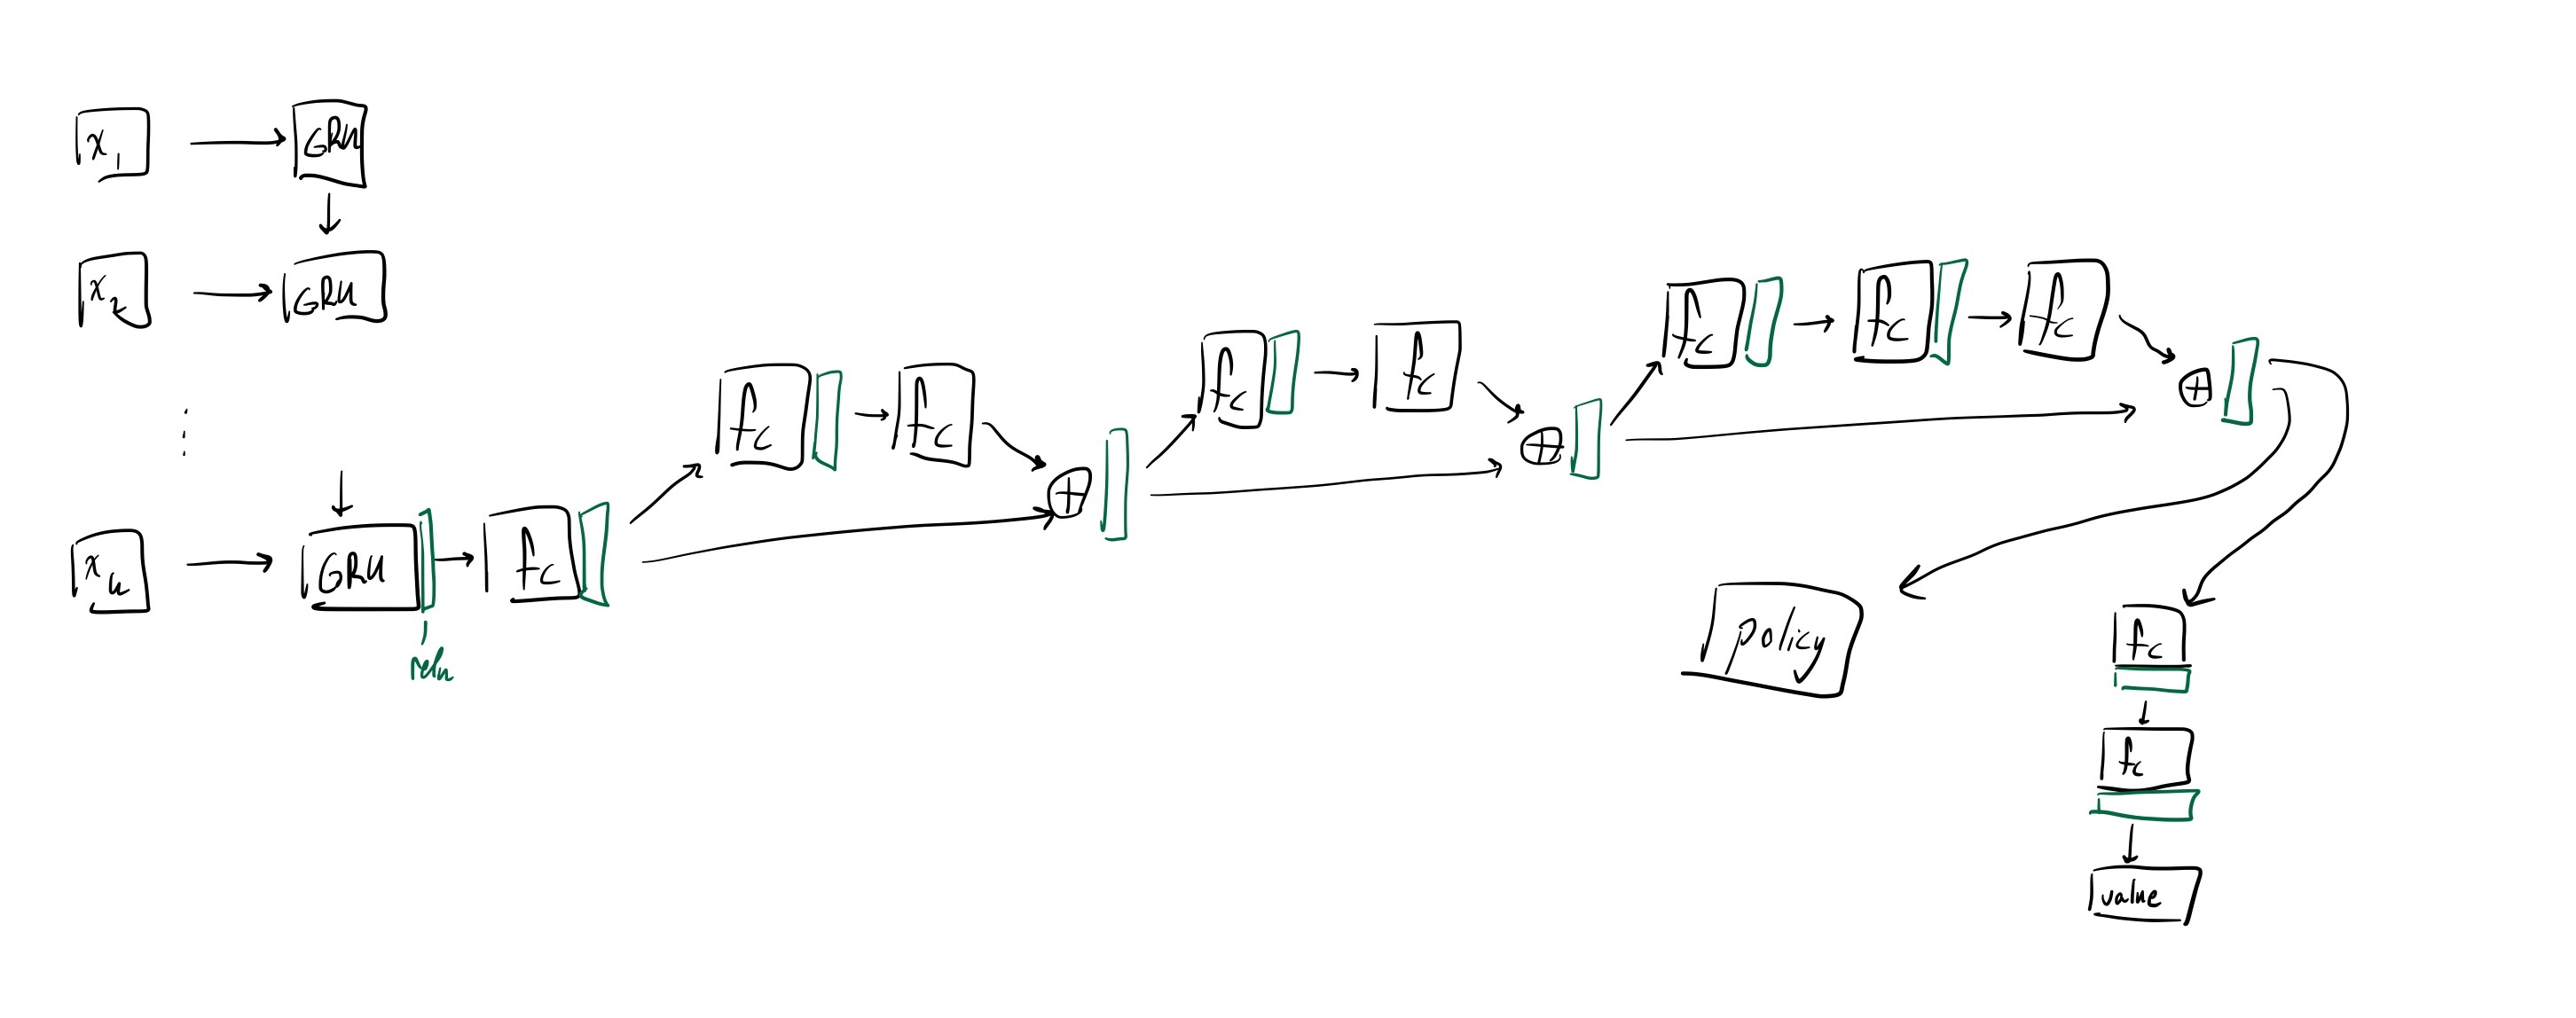 x1
GRU
x2
GRU
xn
GRU
relu
fc
fc
fc
fc
fc
fc
fc
fc
policy
fc
fc
value